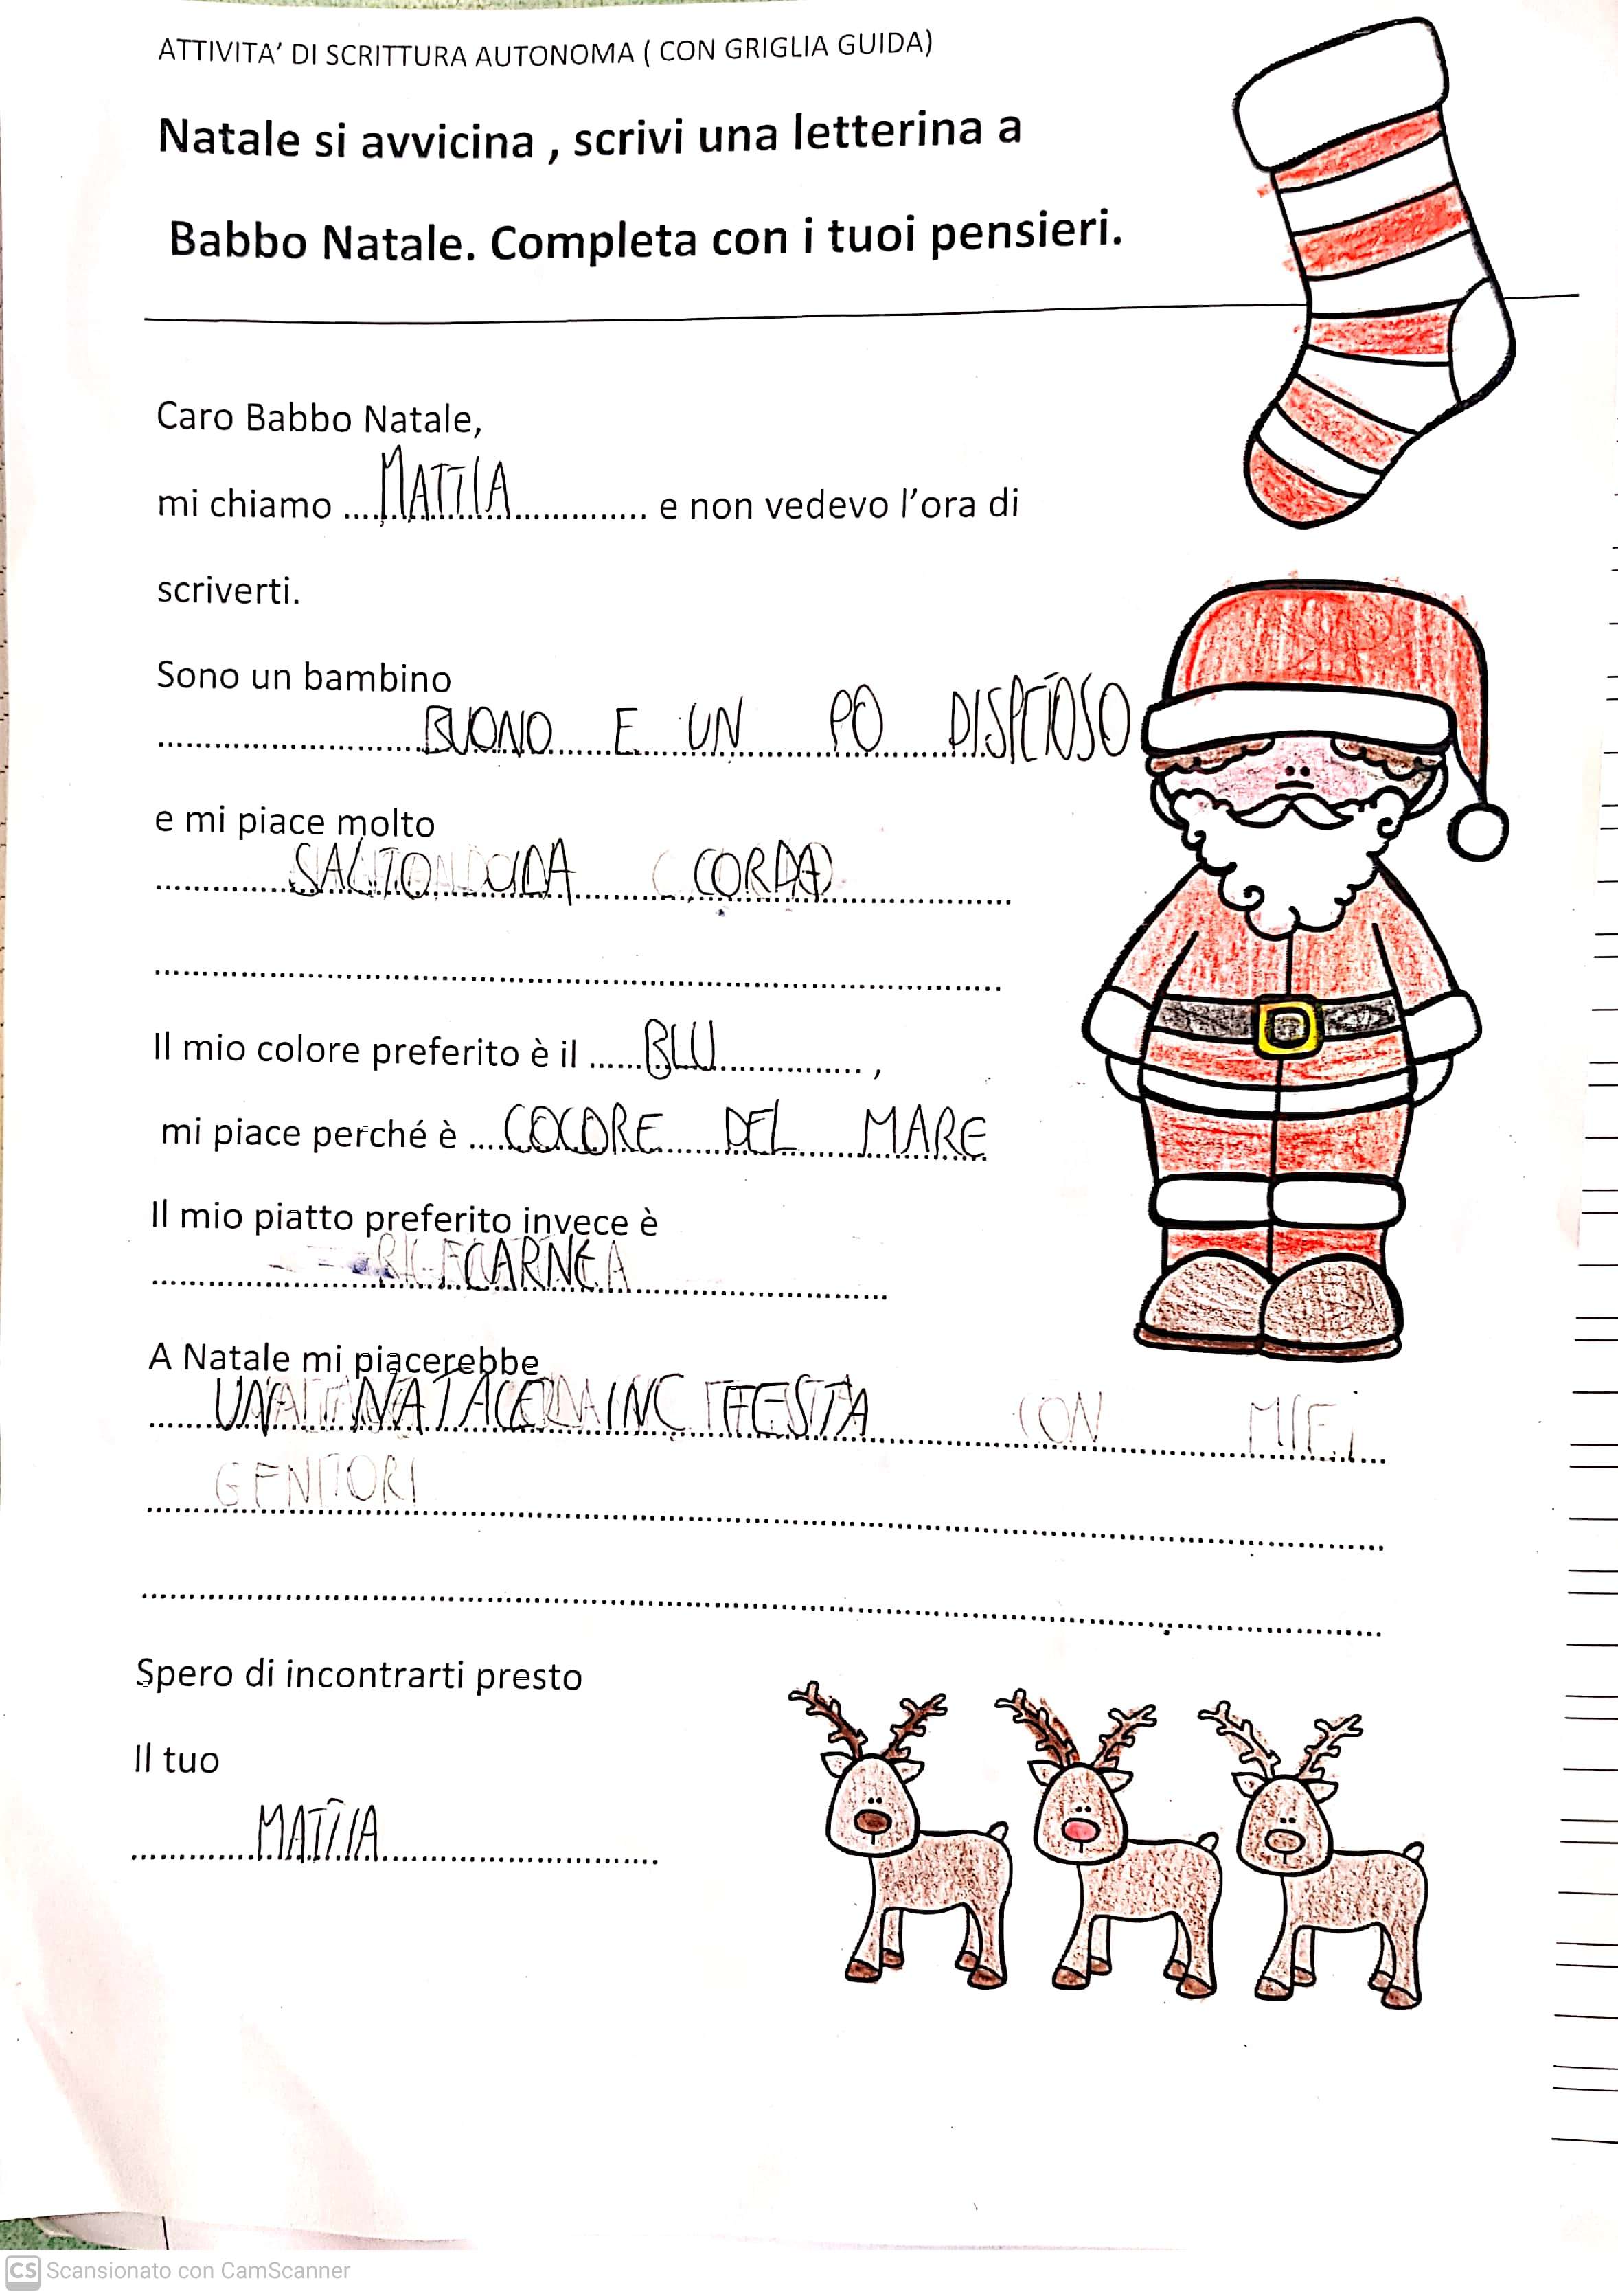 ATTIVITA’ DI SCRITTURA AUTONOMA ( CON GRIGLIA GUIDA)
Natale si avvicina , scrivi una letterina a
Babbo Natale. Completa con i tuoi pensieri.
Caro Babbo Natale,
mi chiamo ....MATTIA.............. e non vedevo l’ora di
scriverti.
Sono un bambino
BUONO E UN PO DISPETOSO
e mi piace molto
CORDA
Il mio colore preferito è il .....BLU............... ,
mi piace perché è ....COLORE DEL MARE
Il mio piatto preferito invece è
CARNE
A Natale mi piacerebbe
FESTA CON MIEI
GENITORI
Spero di incontrarti presto
Il tuo
MATTIA
CS Scansionato con CamScanner